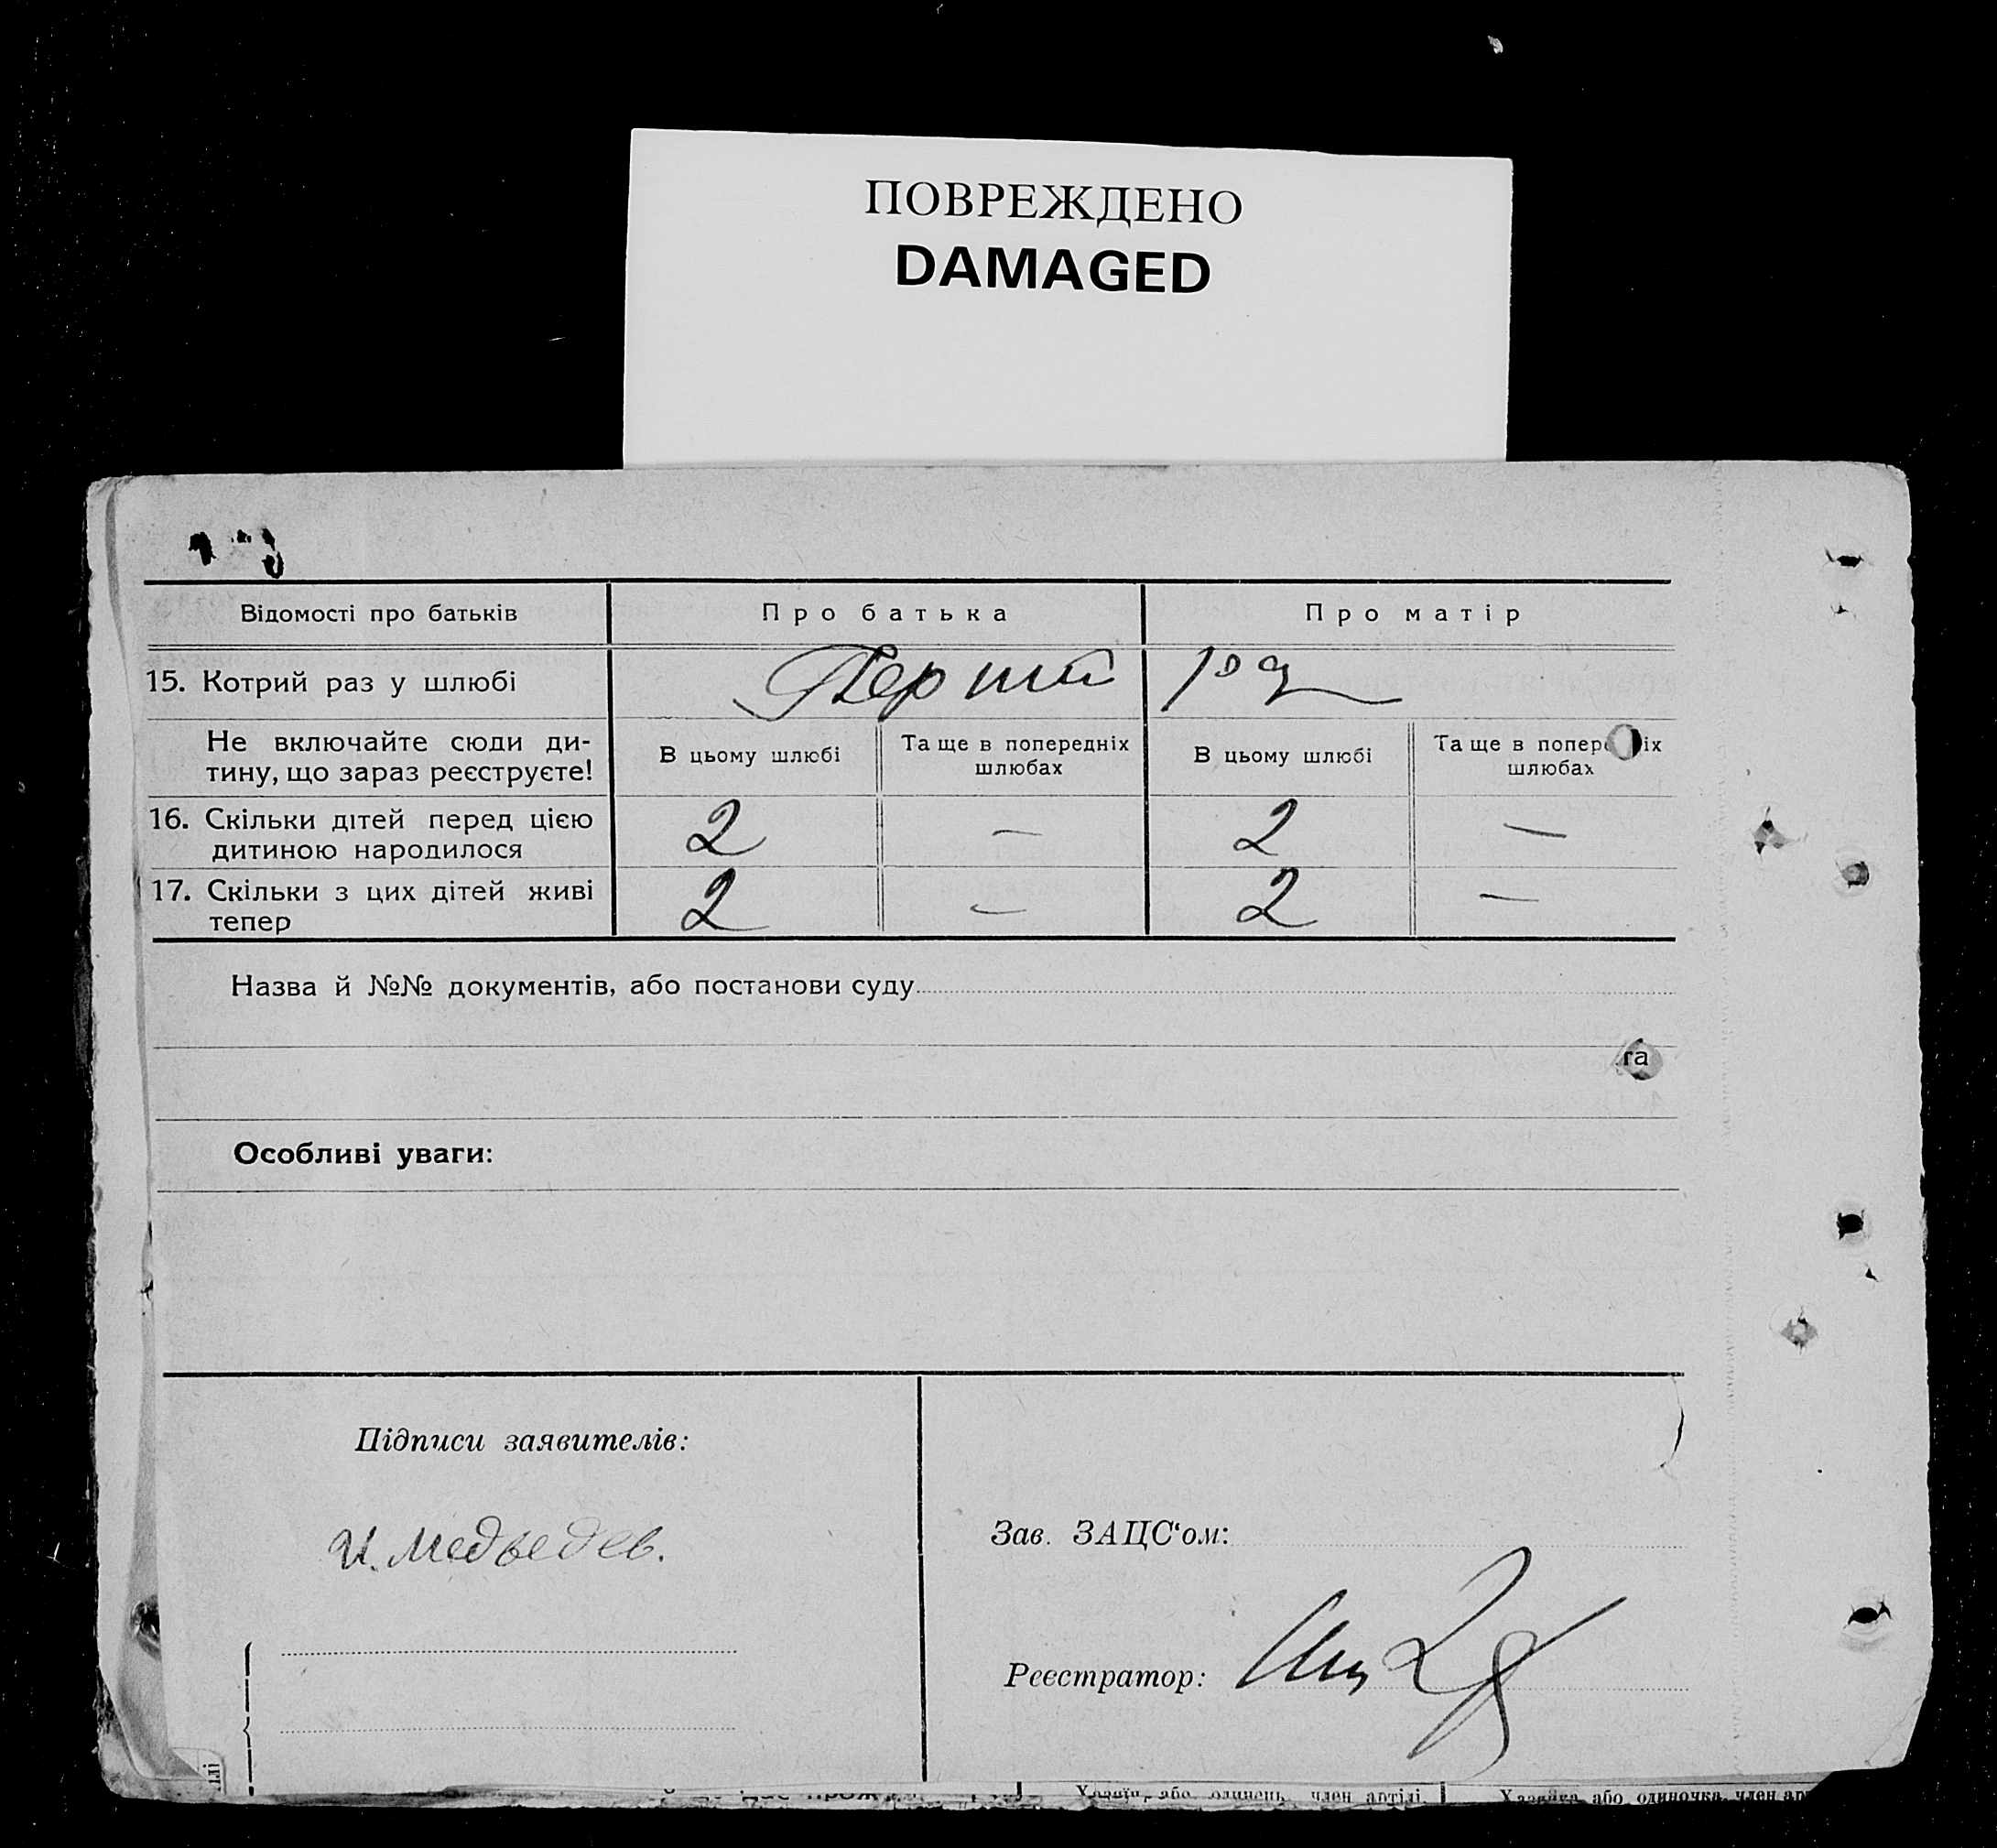 ПОВРЕЖДЕНО
DAMAGED
Відомості про батьків
Про батька
Про матір
15. Котрий раз у шлюбі
Перший раз
Не включайте сюди ди-
тину, що зараз реєструєте!
В цьому шлюбі
Та ще в попередніх
шлюбах
В цьому шлюбі
Та ще в попер іх
шлюбах
16. Скільки дітей перед цією
дитиною народилося
2 — 2 —
17. Скільки з цих дітей живі
тепер
2 — 2 —
Назва й №№ документів, або постанови суду
га
Особливі уваги:
Підписи заявителів:
И. Медведев.
Зав. ЗАЦС‘ом:
Реєстратор:
Хазяїн, або одинець, член артілі,
Хазяйка або одиночка, член ар